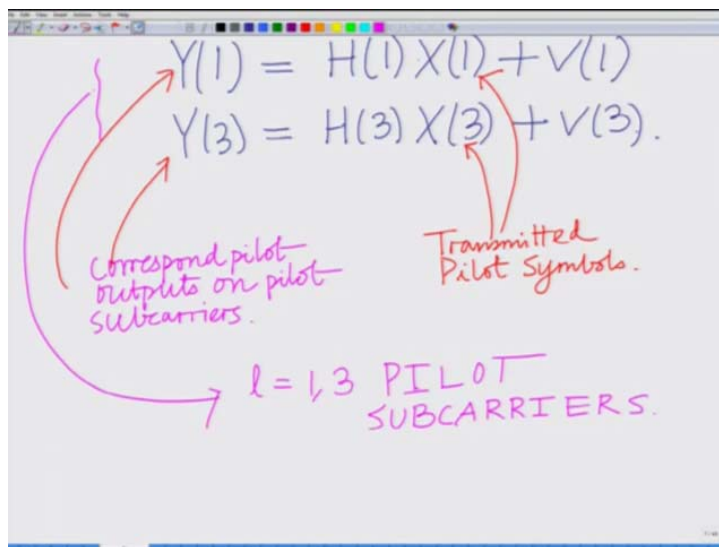 Y(1) = H(1) X(1) + V(1)
Y(3) = H(3) X(3) + V(3).
Correspond pilot
outputs on pilot
subcarriers.
Transmitted
Pilot Symbols.
l = 1,3 PILOT
SUBCARRIERS.